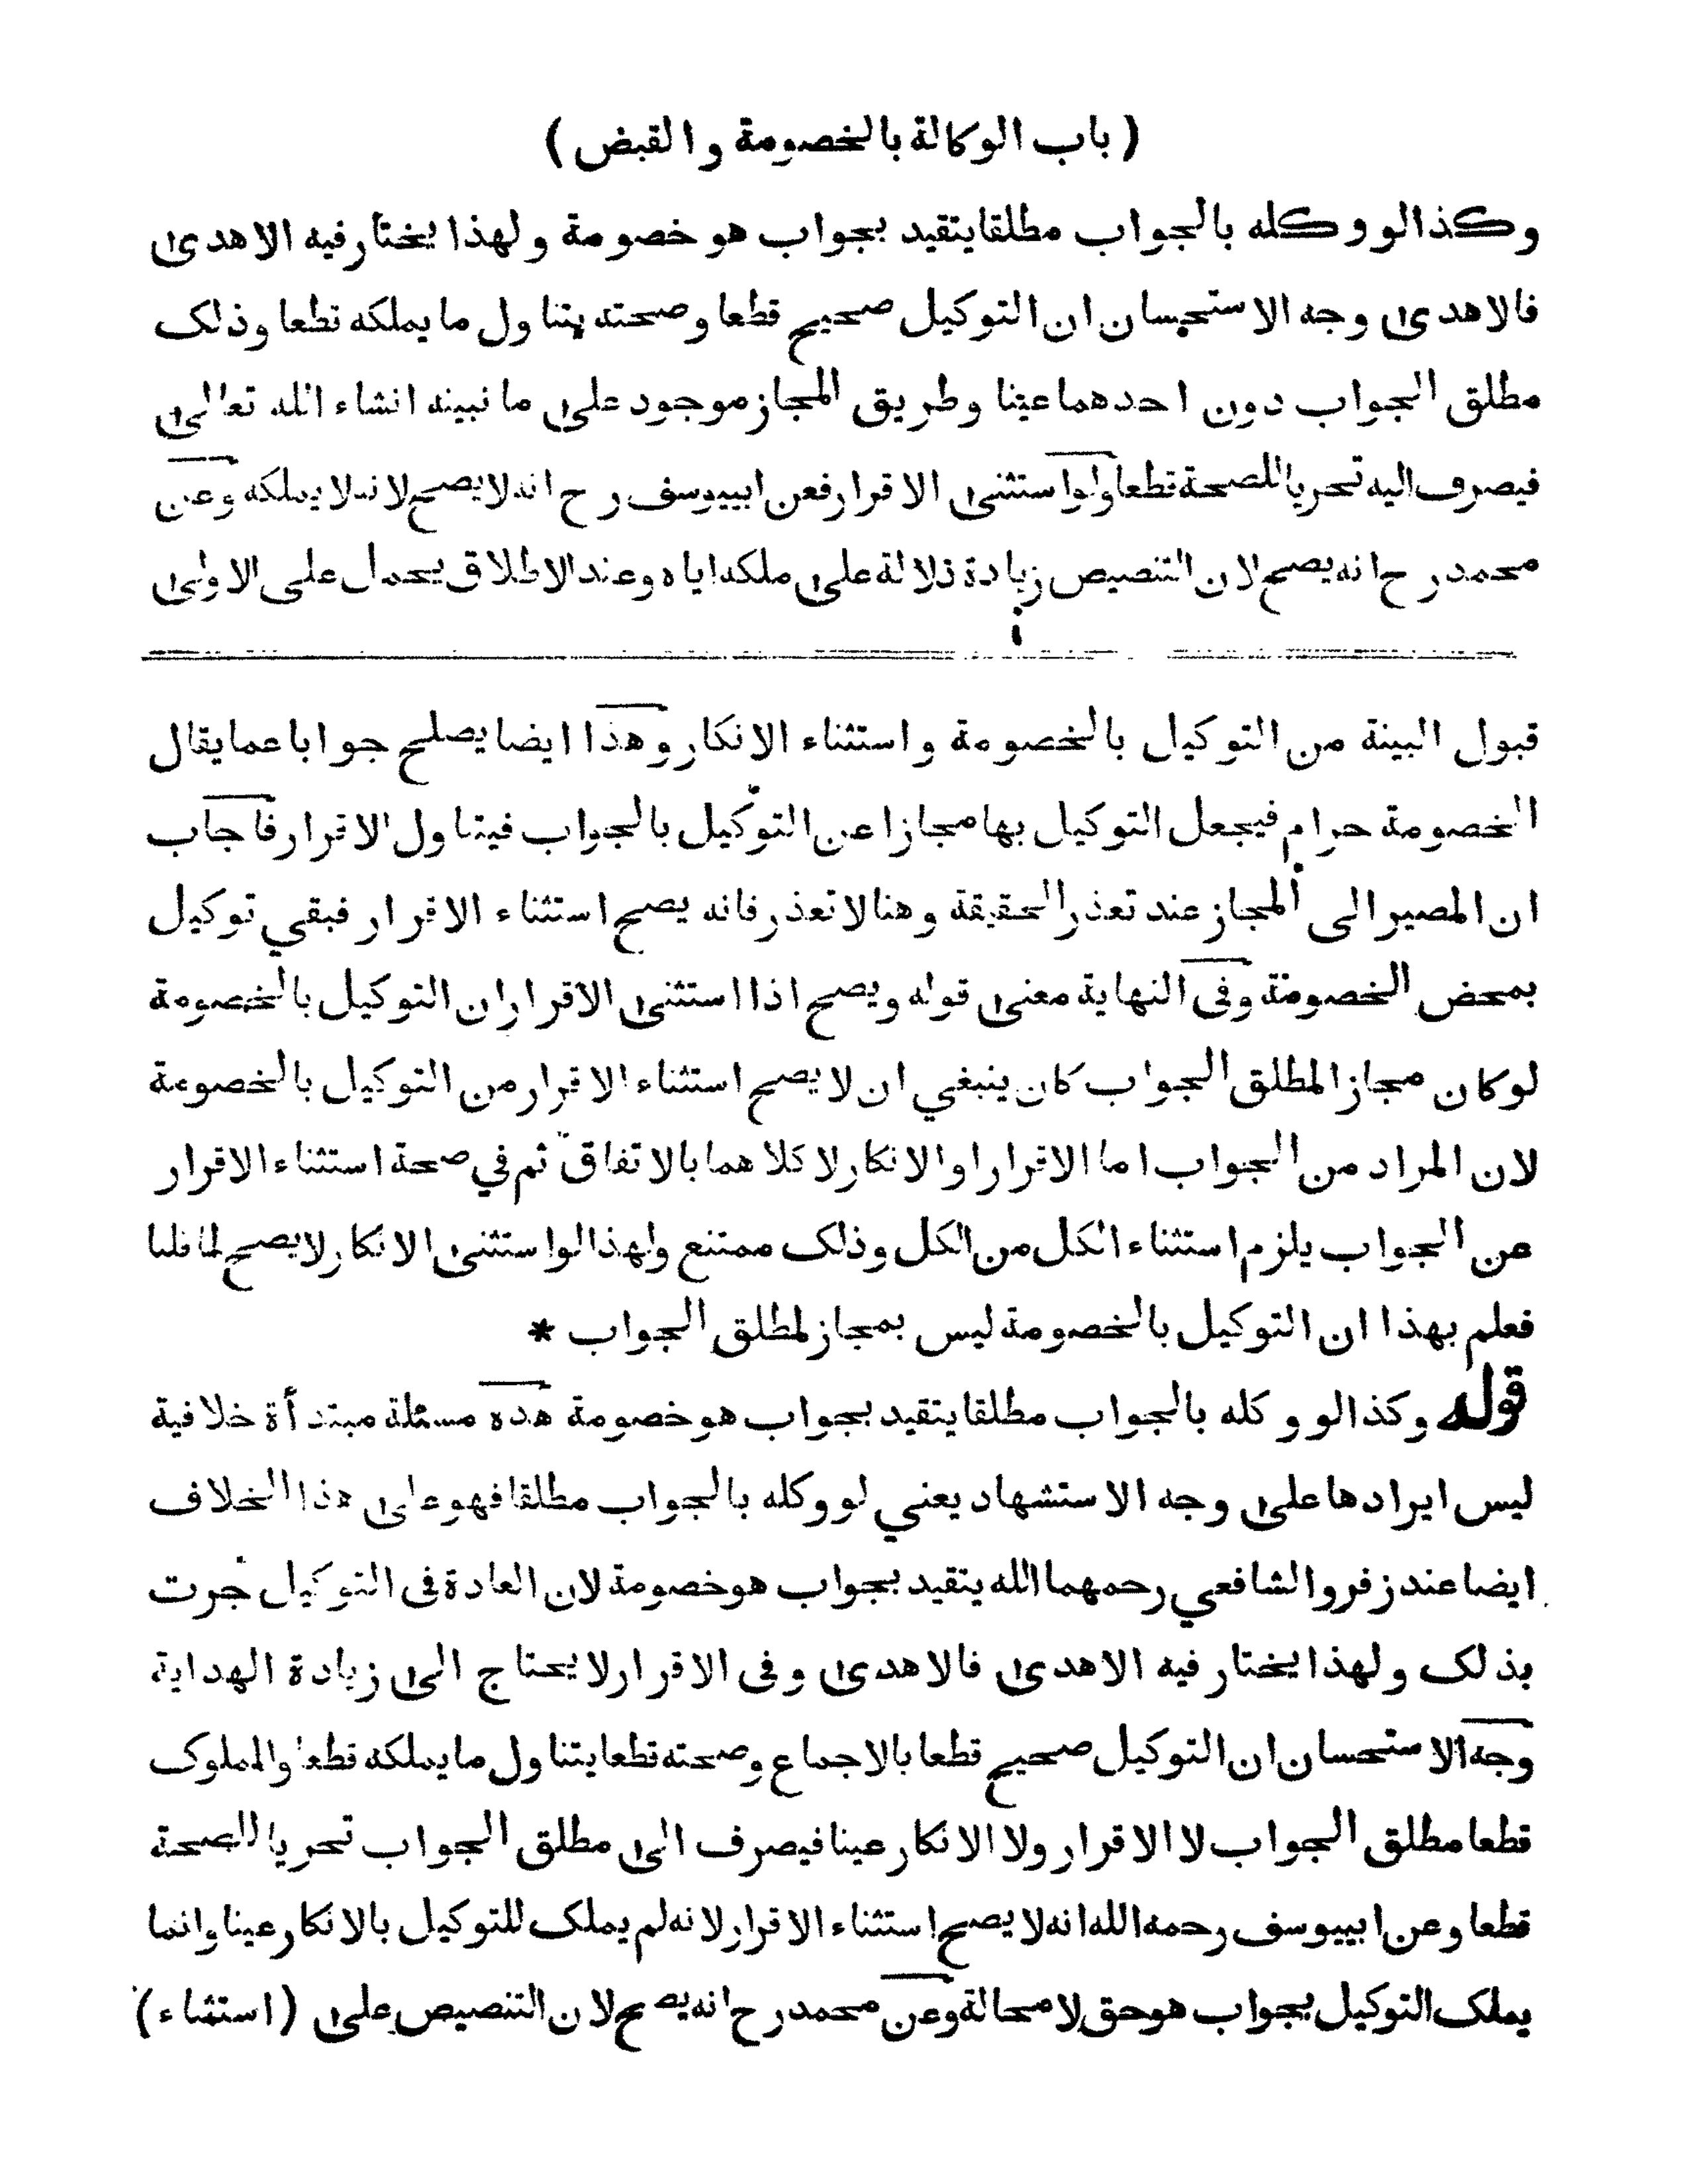 ( باب الوكالة بالخصومة والقبض )
وكذا لو وكله بالجواب مطلقا يتقيد بجواب هو خصومة ولهذا يختار فيه الاهدى
فالاهدى وجه الاستحسان ان التوكيل صحيح قطعا وصحته يتناول ما يملكه قطعا وذلك
مطلق الجواب دون احدهما عينا وطريق المجاز موجود على ما نبينه انشاء الله تعالى
فيصرف اليه تحريا للصحة قطعا ولو استثنى الاقرار فعن ابييوسف رح انه لا يصح لانه لا يملكه وعن
محمد رح انه يصح لان التنصيص زيادة دلالة على ملكه اياه وعند الاطلاق يحمل على الاولى
قبول البينة من التوكيل بالخصومة واستثناء الانكار وهذا ايضا يصلح جوابا عما يقال
الخصومة حرام فيجعل التوكيل بها مجازا عن التوكيل بالجواب فيتناول الاقرار فاجاب
ان المصير الى المجاز عند تعذر الحقيقة وهنا لا تعذر فانه يصح استثناء الاقرار فبقي توكيل
بمحض الخصومة وفى النهاية معنى قوله ويصح اذا استثنى الاقرار ان التوكيل بالخصومة
لو كان مجازا لمطلق الجواب كان ينبغي ان لا يصح استثناء الاقرار من التوكيل بالخصومة
لان المراد من الجواب اما الاقرار او الانكار لا كلاهما بالاتفاق ثم في صحة استثناء الاقرار
عن الجواب يلزم استثناء الكل من الكل وذلك ممتنع ولهذا لو استثنى الانكار لا يصح لما قلنا
فعلم بهذا ان التوكيل بالخصومة ليس بمجاز لمطلق الجواب *
قوله وكذا لو وكله بالجواب مطلقا يتقيد بجواب هو خصومة هذه مسئلة مبتدأة خلافية
ليس ايرادها على وجه الاستشهاد يعني لو وكله بالجواب مطلقا فهو على هذا الخلاف
ايضا عند زفر والشافعي رحمهما الله يتقيد بجواب هو خصومة لان العادة فى التوكيل جرت
بذلك ولهذا يختار فيه الاهدى فالاهدى وفى الاقرار لا يحتاج الى زيادة الهداية
وجه الاستحسان ان التوكيل صحيح قطعا بالاجماع وصحته قطعا يتناول ما يملكه قطعا والمملوك
قطعا مطلق الجواب لا الاقرار ولا الانكار عينا فيصرف الى مطلق الجواب تحريا للصحة
قطعا وعن ابييوسف رحمه الله انه لا يصح استثناء الاقرار لانه لم يملك للتوكيل بالانكار عينا وانما
يملك التوكيل بجواب هو حق لا محالة وعن محمد رح انه يصح لان التنصيص على ( استثناء )